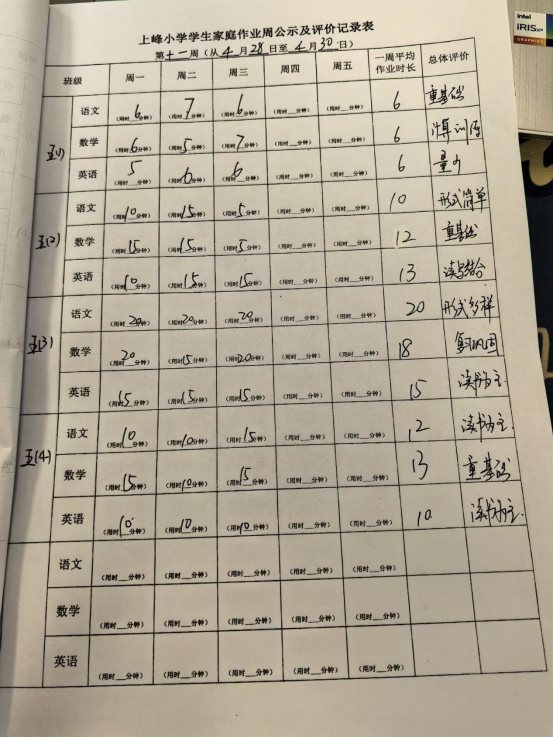 intel
iRIS Xe
GRAPHICS
上峰小学学生家庭作业周公示及评价记录表
第十一周（从4月28日至4月30日）
班级 周一 周二 周三 周四 周五 一周平均作业时长 总体评价
五(1) 语文 （用时6分钟） （用时7分钟） （用时6分钟） （用时__分钟） （用时__分钟） 6 重基础
数学 （用时6分钟） （用时5分钟） （用时7分钟） （用时__分钟） （用时__分钟） 6 计算训练
英语 （用时5分钟） （用时6分钟） （用时6分钟） （用时__分钟） （用时__分钟） 6 量少
五(2) 语文 （用时10分钟） （用时15分钟） （用时5分钟） （用时__分钟） （用时__分钟） 10 形式简单
数学 （用时15分钟） （用时15分钟） （用时5分钟） （用时__分钟） （用时__分钟） 12 重基础
英语 （用时10分钟） （用时15分钟） （用时15分钟） （用时__分钟） （用时__分钟） 13 读写结合
五(3) 语文 （用时20分钟） （用时20分钟） （用时20分钟） （用时__分钟） （用时__分钟） 20 形式多样
数学 （用时20分钟） （用时15分钟） （用时20分钟） （用时__分钟） （用时__分钟） 18 复习巩固
英语 （用时15分钟） （用时15分钟） （用时15分钟） （用时__分钟） （用时__分钟） 15 读书为主.
五(4) 语文 （用时10分钟） （用时10分钟） （用时15分钟） （用时__分钟） （用时__分钟） 12 读书为主
数学 （用时15分钟） （用时10分钟） （用时15分钟） （用时__分钟） （用时__分钟） 13 重基础
英语 （用时10分钟） （用时10分钟） （用时10分钟） （用时__分钟） （用时__分钟） 10 读书为主.
语文 （用时__分钟） （用时__分钟） （用时__分钟） （用时__分钟） （用时__分钟）
数学 （用时__分钟） （用时__分钟） （用时__分钟） （用时__分钟） （用时__分钟）
英语 （用时__分钟） （用时__分钟） （用时__分钟） （用时__分钟） （用时__分钟）